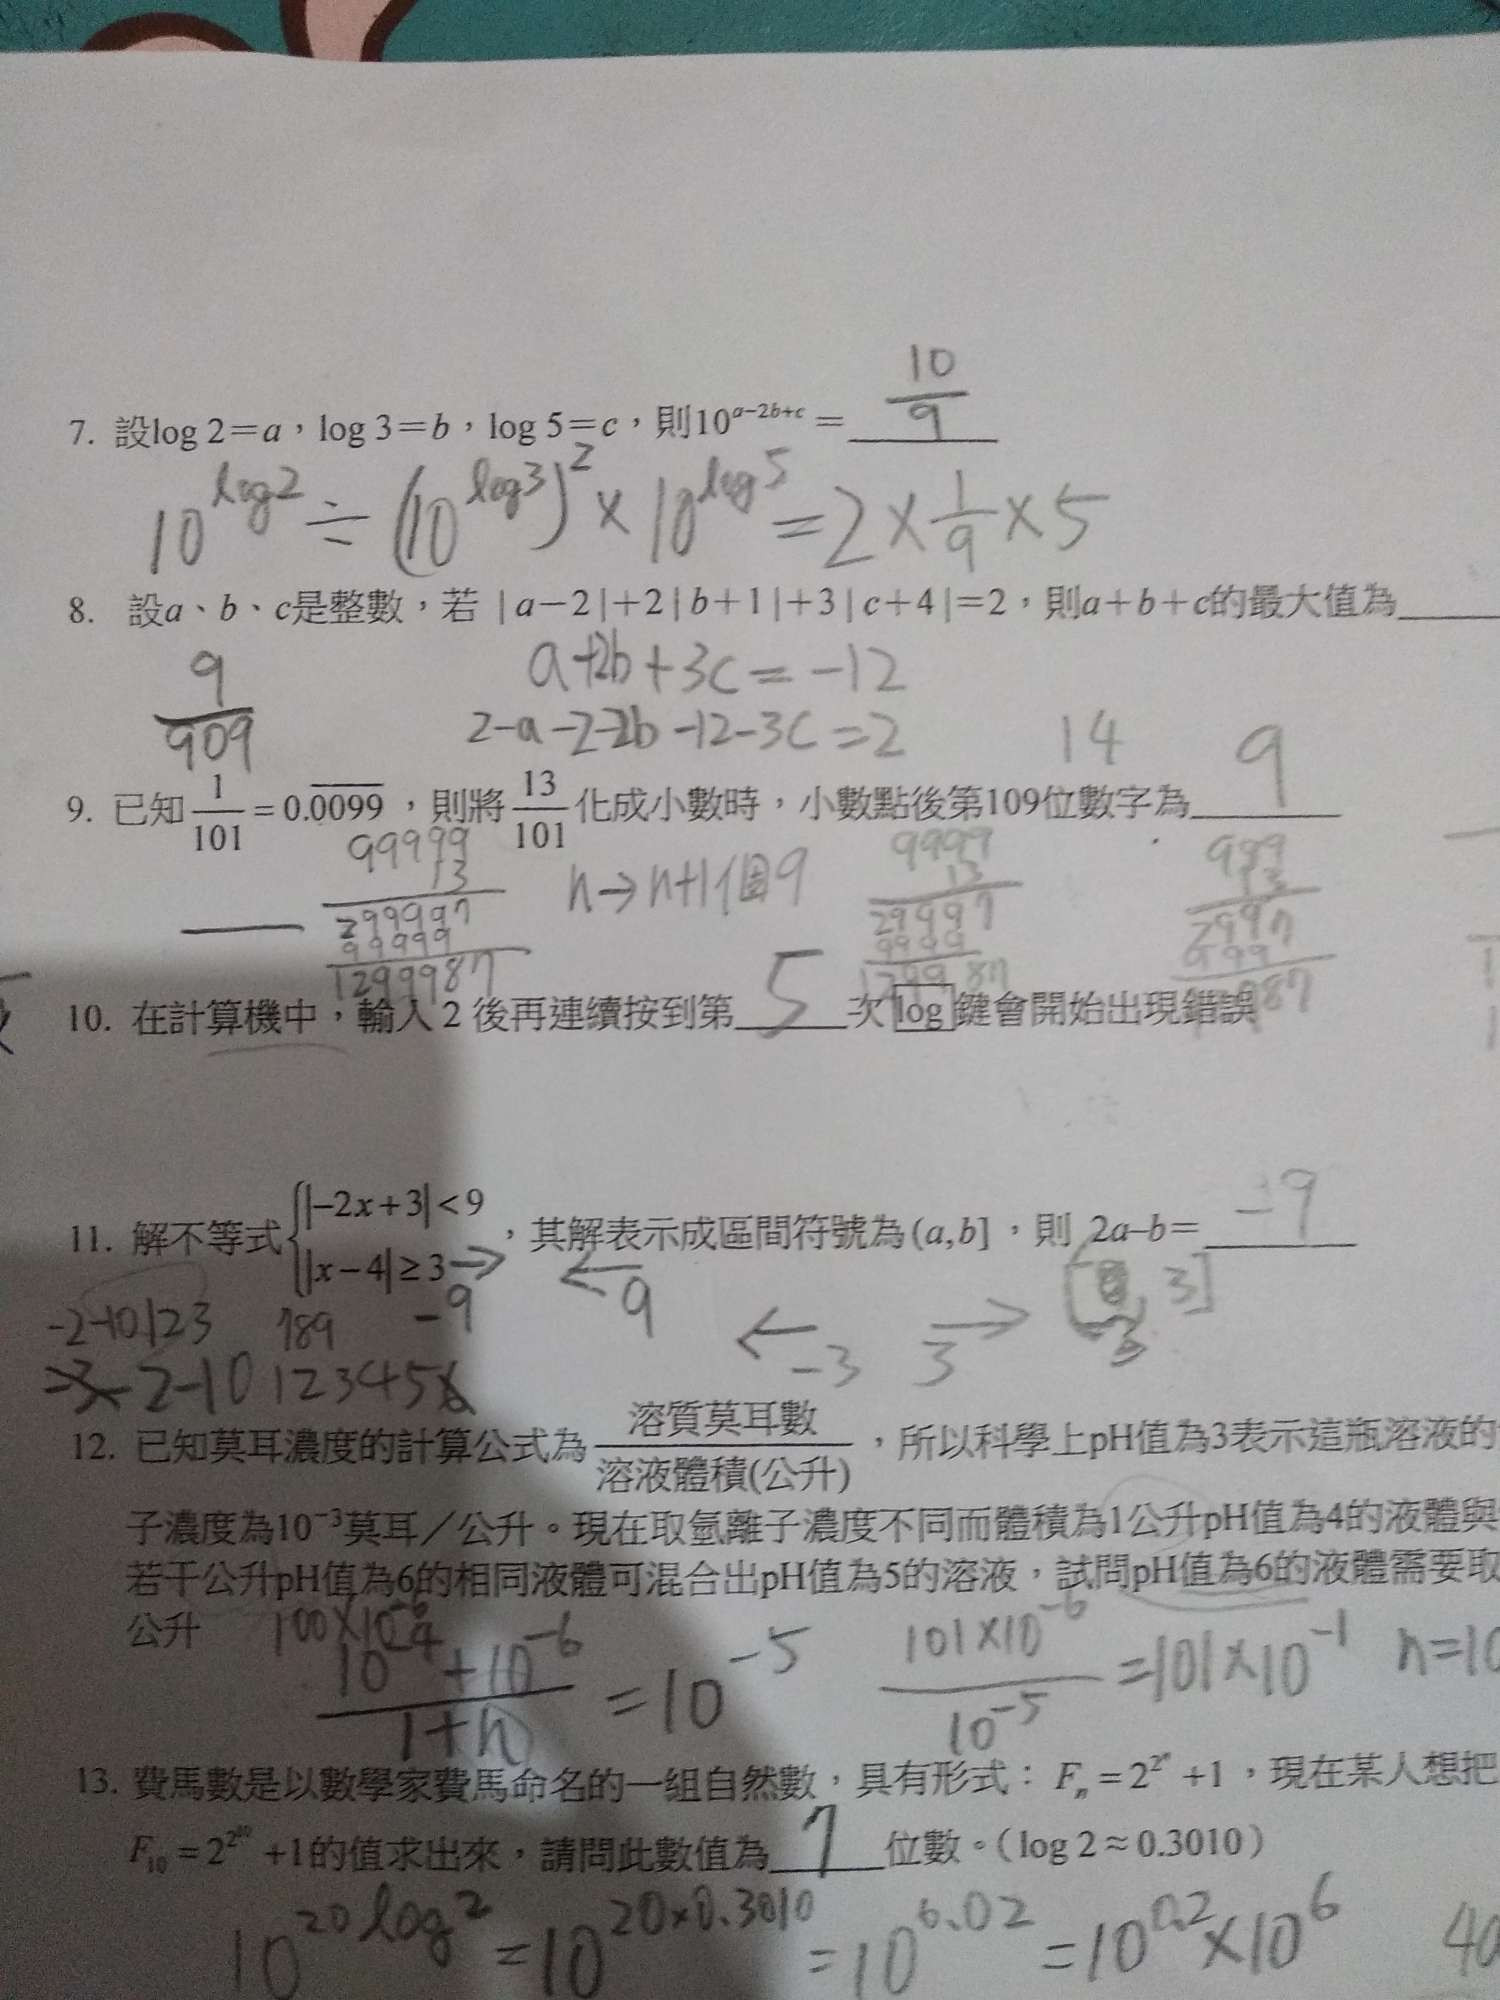 10/9
7. 設log 2=a，log 3=b，log 5=c，則10^(a−2b+c) =
10^log2 ÷ (10^log3)^2 × 10^log5 = 2 × 1/9 × 5
8. 設a、b、c是整數，若 |a−2|+2|b+1|+3|c+4|=2，則a+b+c的最大值為
9/909 a+2b+3c=-12
2-a-2-2b-12-3c=2 14 9
9. 已知 1/101 = 0.0099，則將 13/101 化成小數時，小數點後第109位數字為
99999 9999 999
13 n→n+1個9 13 13
299997 29997 2997
99999 9999 999
1299987
10. 在計算機中，輸入 2 後再連續按到第 5 次 log 鍵會開始出現錯誤
11. 解不等式 |−2x+3|<9 |x−4|≥3，其解表示成區間符號為(a,b]，則 2a–b= -9
-9 9 -3 3 3]
-2-10123 789
-3-2-10123456
12. 已知莫耳濃度的計算公式為 溶質莫耳數/溶液體積(公升)，所以科學上pH值為3表示這瓶溶液的
子濃度為10^−3莫耳／公升。現在取氫離子濃度不同而體積為1公升pH值為4的液體與
若干公升pH值為6的相同液體可混合出pH值為5的溶液，試問pH值為6的液體需要取
公升 100×10^-6
(10^-4+10^-6)/(1+n) =10^-5 (101×10^-6)/10^-5 =101×10^-1 n=10
13. 費馬數是以數學家費馬命名的一組自然數，具有形式：F_n = 2^2^n +1，現在某人想把
F_10 = 2^2^10 +1的值求出來，請問此數值為 7 位數。（log 2 ≈ 0.3010）
10^20log2 =10^20×0.3010 =10^6.02 =10^0.2×10^6